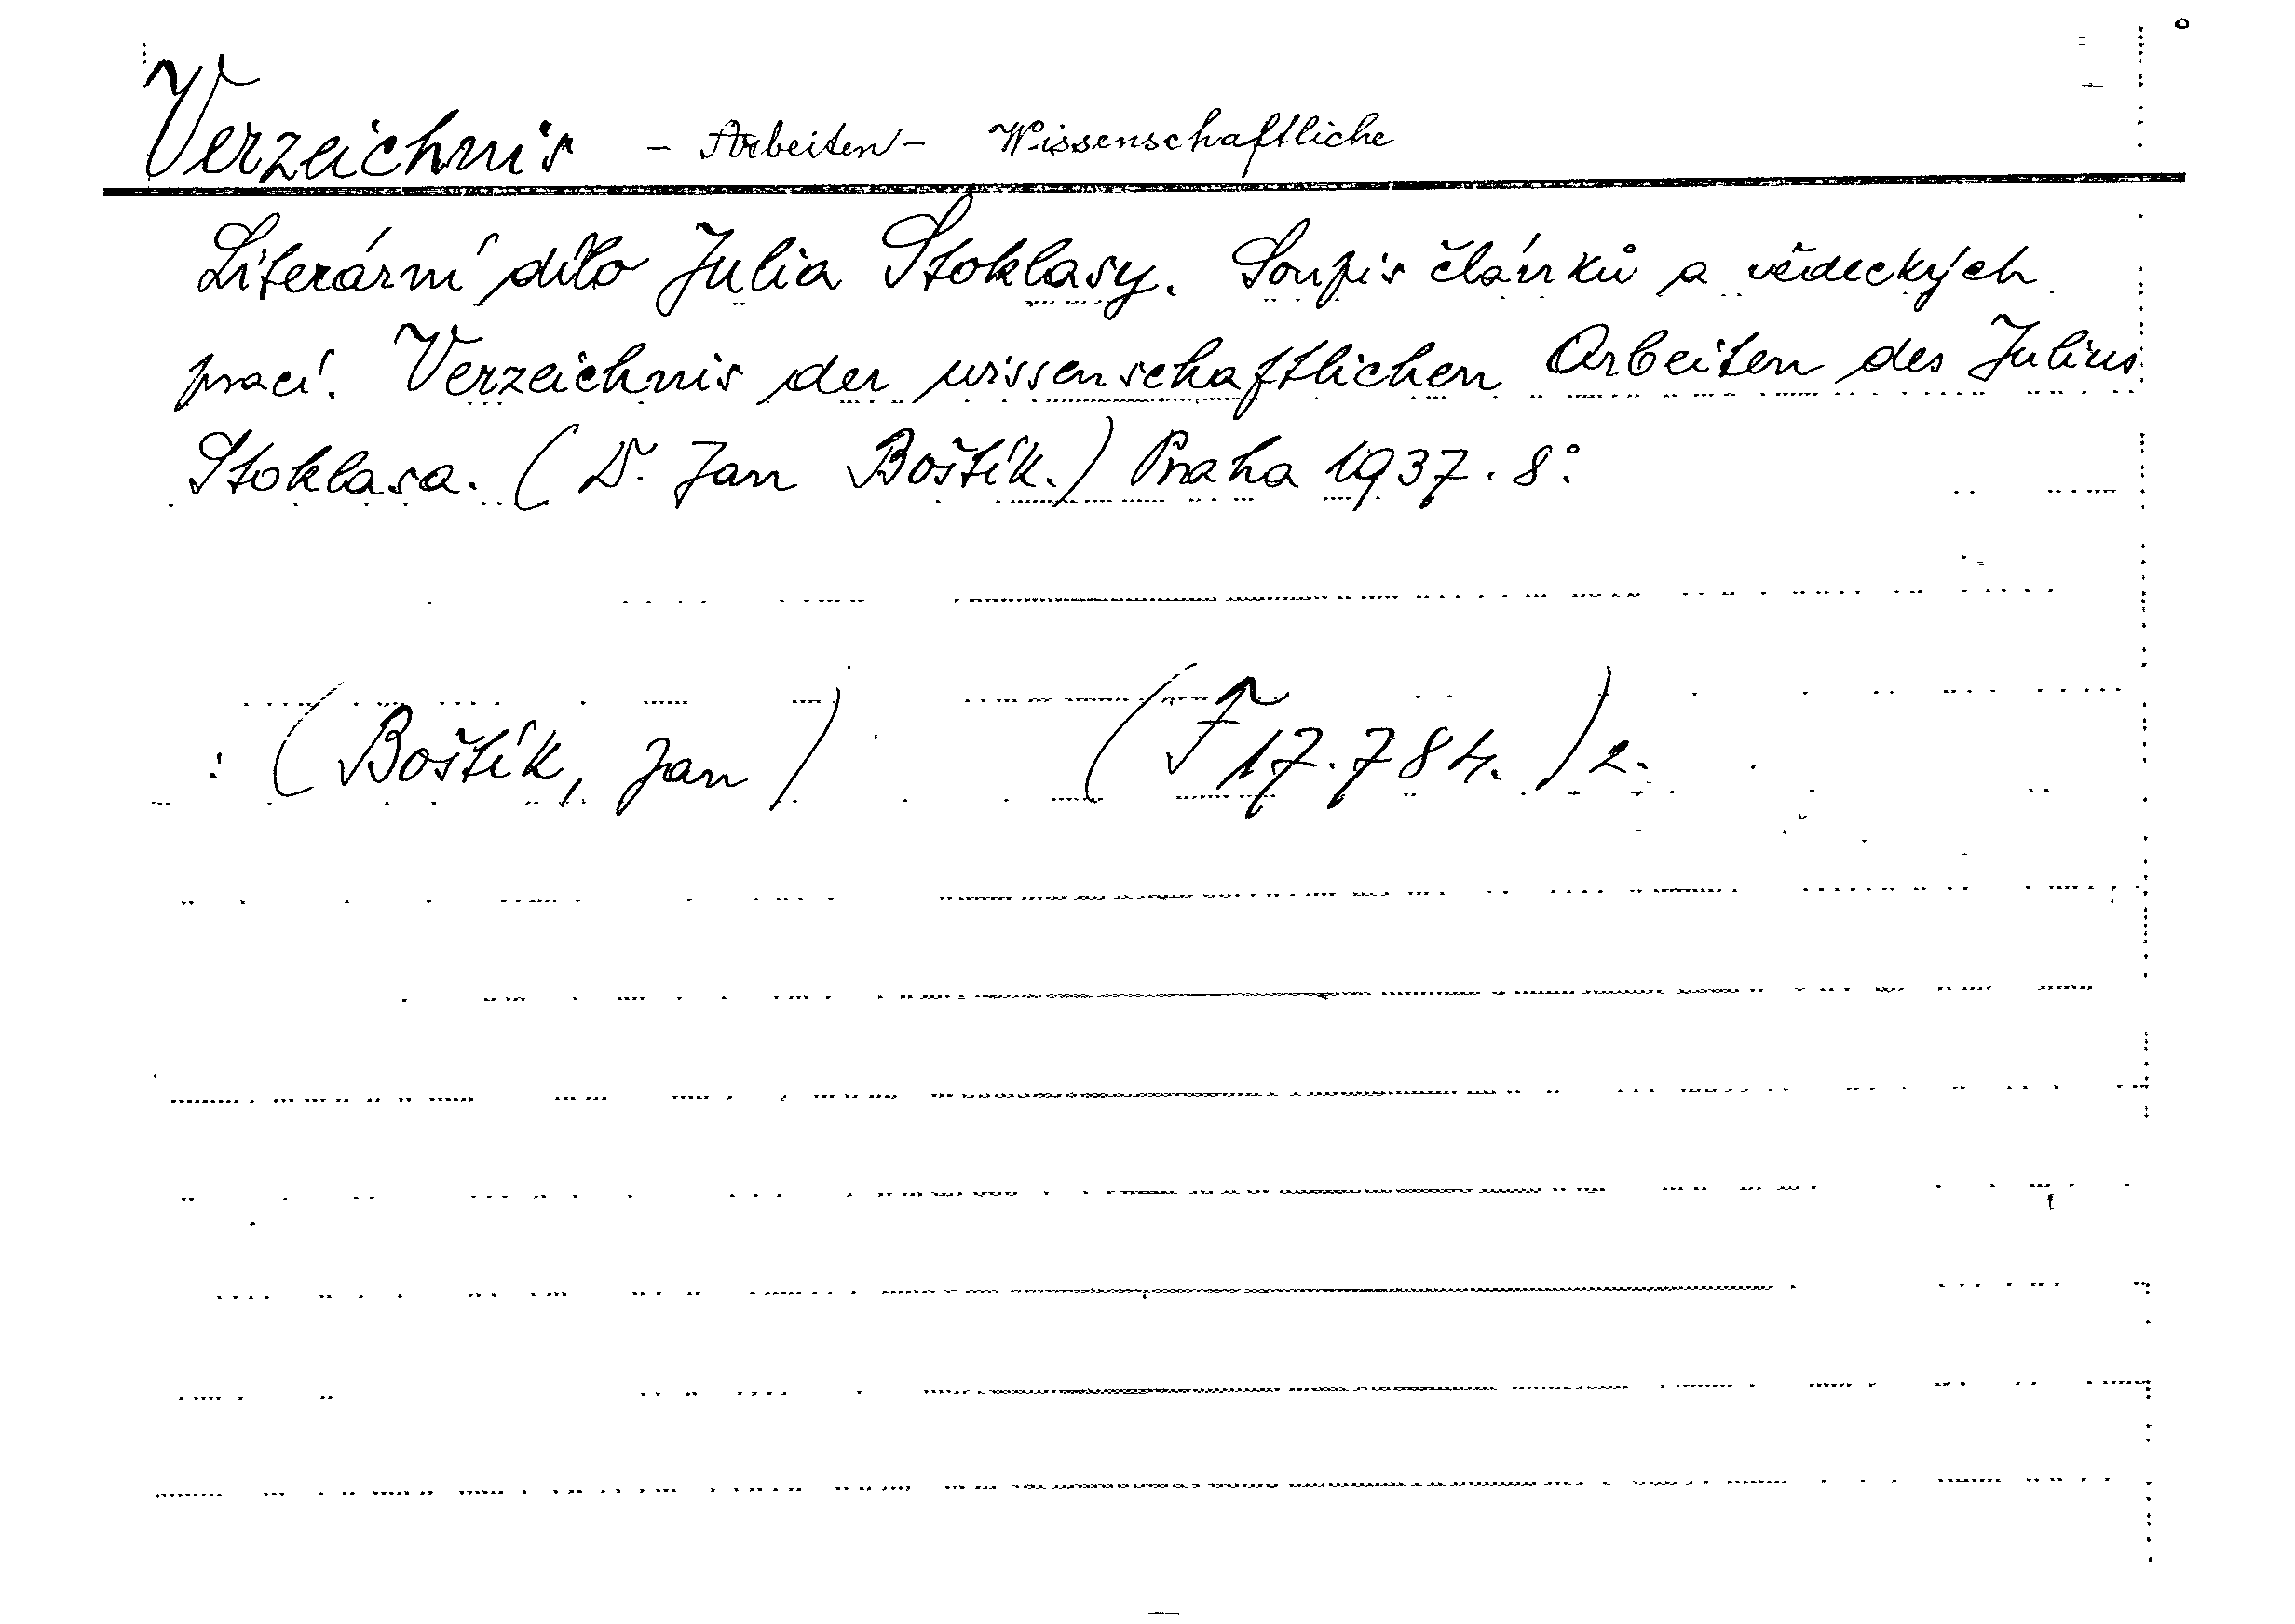 Verzeichnis - Arbeiten - Wissenschaftliche
Literární dílo Julia Stoklasy. Soupis článků a vědeckých
prací. Verzeichnis der wissenschaftlichen Arbeiten des Julius
Stoklasa. (D. Jan Boštík.) Praha 1937. 8°.
: (Boštík, Jan) (F 17.784.) 2.